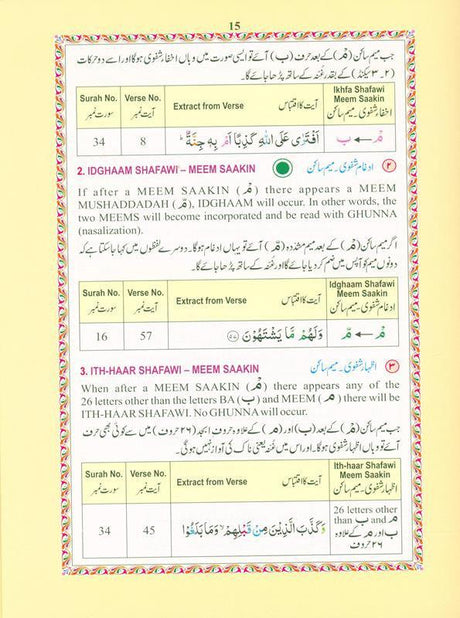 15
جب میم ساکن (مْ) کے بعد حرف (ب) آئے تو ایسی صورت میں وہاں اخفار شفوی ہوگا اور اسے دو حرکات
(۲۔۳ سیکنڈ) کے بقدر غنّہ کے ساتھ پڑھا جائے گا۔
Surah No. سورت نمبر
Verse No. آیت نمبر
Extract from Verse آیت کا اقتباس
Ikhfa Shafawi
Meem Saakin
اخفار شفوی۔ میم ساکن
34 8 اَفْتَرٰى عَلَى اللّٰهِ كَذِبًا اَمْ بِهٖ جِنَّةٌ ؕ مْ ← ب
2. IDGHAAM SHAFAWI – MEEM SAAKIN ادغام شفوی۔ میم ساکن ②
If after a MEEM SAAKIN (مْ) there appears a MEEM
MUSHADDADAH (مّ), IDGHAAM will occur. In other words, the
two MEEMS will become incorporated and be read with GHUNNA
(nasalization).
اگر میم ساکن (مْ) کے بعد میم مشدّدہ (مّ) آئے تو یہاں ادغام ہوگا۔ دوسرے لفظوں میں کہا جا سکتا ہے کہ
دونوں میم کو آپس میں ضم کر دیا جائے گا اور غنّہ کے ساتھ پڑھا جائے گا۔
Surah No. سورت نمبر
Verse No. آیت نمبر
Extract from Verse آیت کا اقتباس
Idghaam Shafawi
Meem Saakin
ادغام شفوی۔ میم ساکن
16 57 وَلَهُمْ مَّا يَشْتَهُوْنَ ﴿۵۷﴾ مْ ← مّ
3. ITH-HAAR SHAFAWI – MEEM SAAKIN اظہار شفوی۔ میم ساکن ③
When after a MEEM SAAKIN (مْ) there appears any of the
26 letters other than the letters BA (ب) and MEEM (م) there will be
ITH-HAAR SHAFAWI. No GHUNNA will occur.
جب میم ساکن (مْ) کے بعد (ب) اور (م) کے علاوہ حروف ابجد (۲۶ حروف) میں سے کوئی بھی حرف
آئے تو وہاں اظہار شفوی ہوگا۔ اور اس میں غنّہ یعنی ناک کی آواز نہیں ہوگی۔
Surah No. سورت نمبر
Verse No. آیت نمبر
Extract from Verse آیت کا اقتباس
Ith-haar Shafawi
Meem Saakin
اظہار شفوی۔ میم ساکن
34 45 وَكَذَّبَ الَّذِيْنَ مِنْ قَبْلِهِمْ ۙ وَمَا بَلَغُوْا
26 letters other
than ب and م
ب اور م کے علاوہ
۲۶ حروف